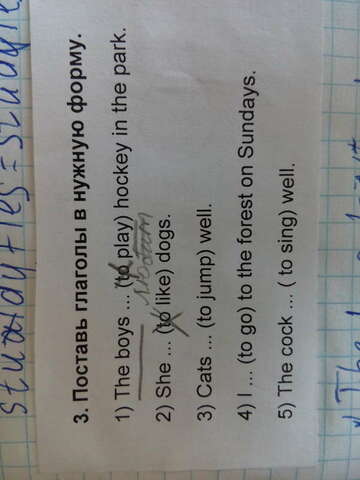 study + ies = studie
3. Поставь глаголы в нужную форму.
1) The boys ... (to play) hockey in the park.
2) She ... (to like) dogs.
3) Cats ... (to jump) well.
4) I ... (to go) to the forest on Sundays.
5) The cock ... ( to sing) well.